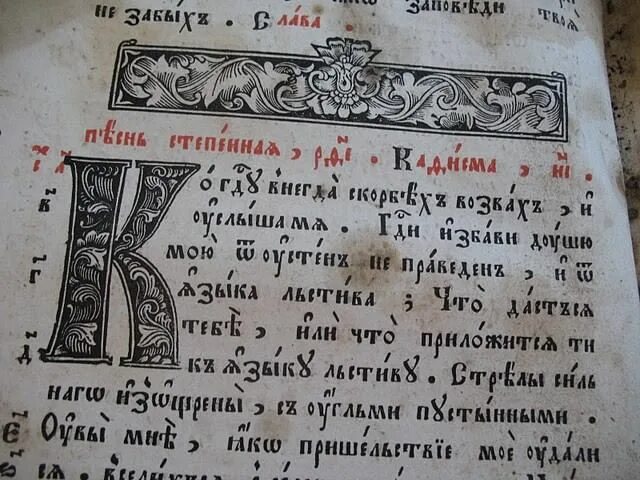 заповѣди твоѧ
не забы́хъ . Сла́ва .
пѣ́снь степе́нная , р҃ѳі . Каѳи́сма , и҃і .
Ко гд҇ꙋ внегда̀ скорбѣ́хъ возва́хъ , и҆
ᲂу҆слы́ша мѧ . Гд҇и и҆зба́ви дꙋ́шю
мою̀ ѿ ᲂу҆сте́нъ не пра́веденъ , и҆ ѿ
ѧ҆зы́ка льсти́ва ; Что̀ да́стьсѧ
тебѣ̀ , и҆лѝ что̀ приложи́тсѧ ти
къ ѧ҆зы́кꙋ льсти́вꙋ . Стрѣ́лы си́ль
нагѡ и҆зѡщре́ны̀ , съ ᲂу҆́гльми пꙋсты́нными .
Оу҆вы̀ мнѣ̀ , ꙗ҆́кѡ прише́льствїе моѐ ᲂу҆дали
сѧ .